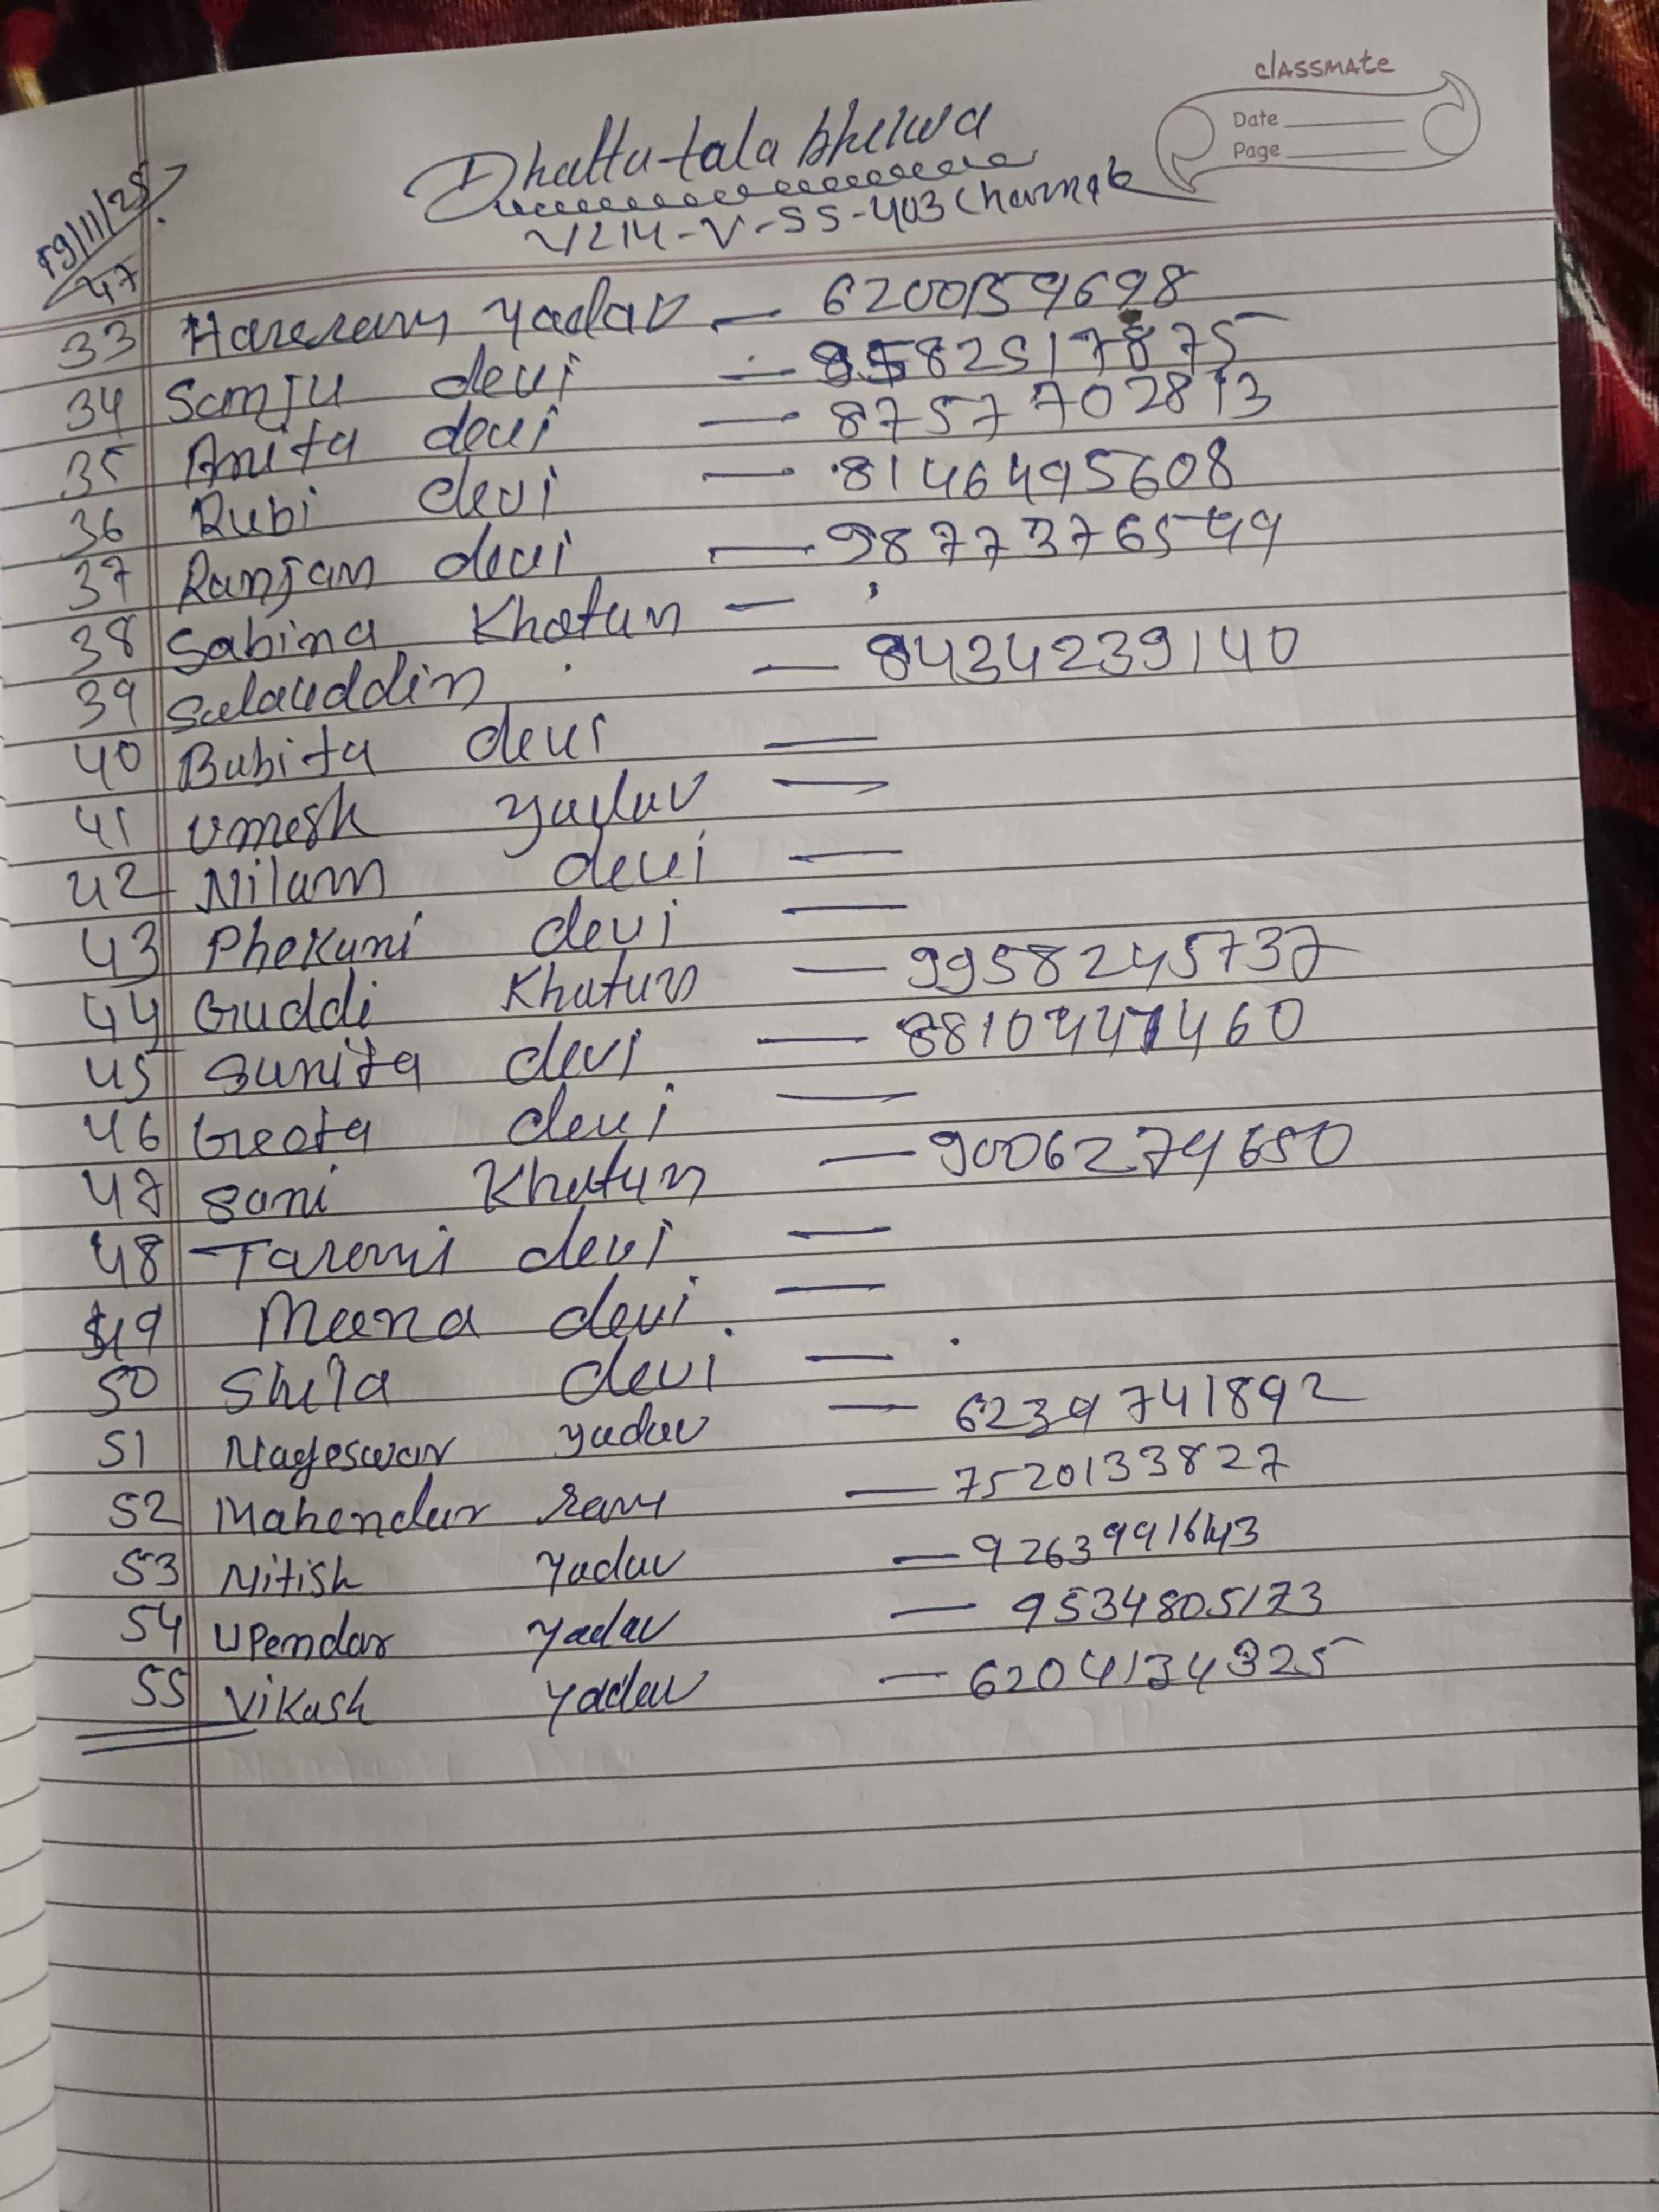 classmate
Date
Page
Dhattatola bhelwa
V214-V-SS-403 Charmob
19/11/25
47
33 Hareram yadav - 6200159698
34 Sanju devi - 9582517875
35 Anita devi - 8757702813
36 Rubi devi - 8146495608
37 Ranjan devi - 9877376549
38 Sabina Khatun -
39 Salauddin - 8434239140
40 Babita devi -
41 Umesh yadav -
42 Nilam devi -
43 Phekani devi -
44 Guddi Khatun - 9958245737
45 Sunita devi - 8810447460
46 Geeta devi -
47 Soni Khatun - 9006274650
48 Tareni devi -
49 Meena devi -
50 Shila devi -
51 Nageswar yadav - 6239741892
52 Mahendar ram - 7520133827
53 Nitish yadav - 9263991643
54 Upendar yadav - 9534805173
55 Vikash yadav - 6204134325